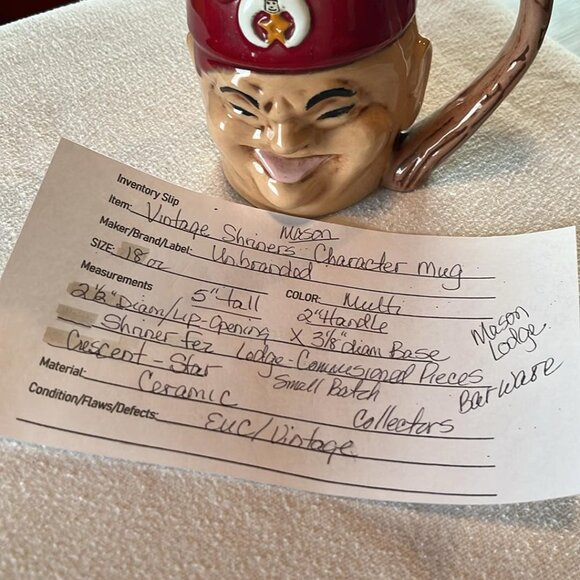 Inventory Slip
Mason
Item: Vintage Shriners Character Mug
Maker/Brand/Label: Unbranded
SIZE: 18 oz
COLOR: Multi
Measurements 5" tall 2" Handle
2½" Diam/Lip-Opening X 3⅛" diam Base
Shriner fez Lodge-Commissioned Pieces
Crescent-Star Small Batch
Material: Ceramic Collectors
Condition/Flaws/Defects: EUC/Vintage
Mason
Lodge
BarWare